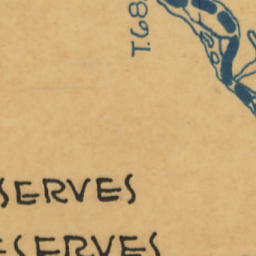 T.68
SERVES
ESERVES